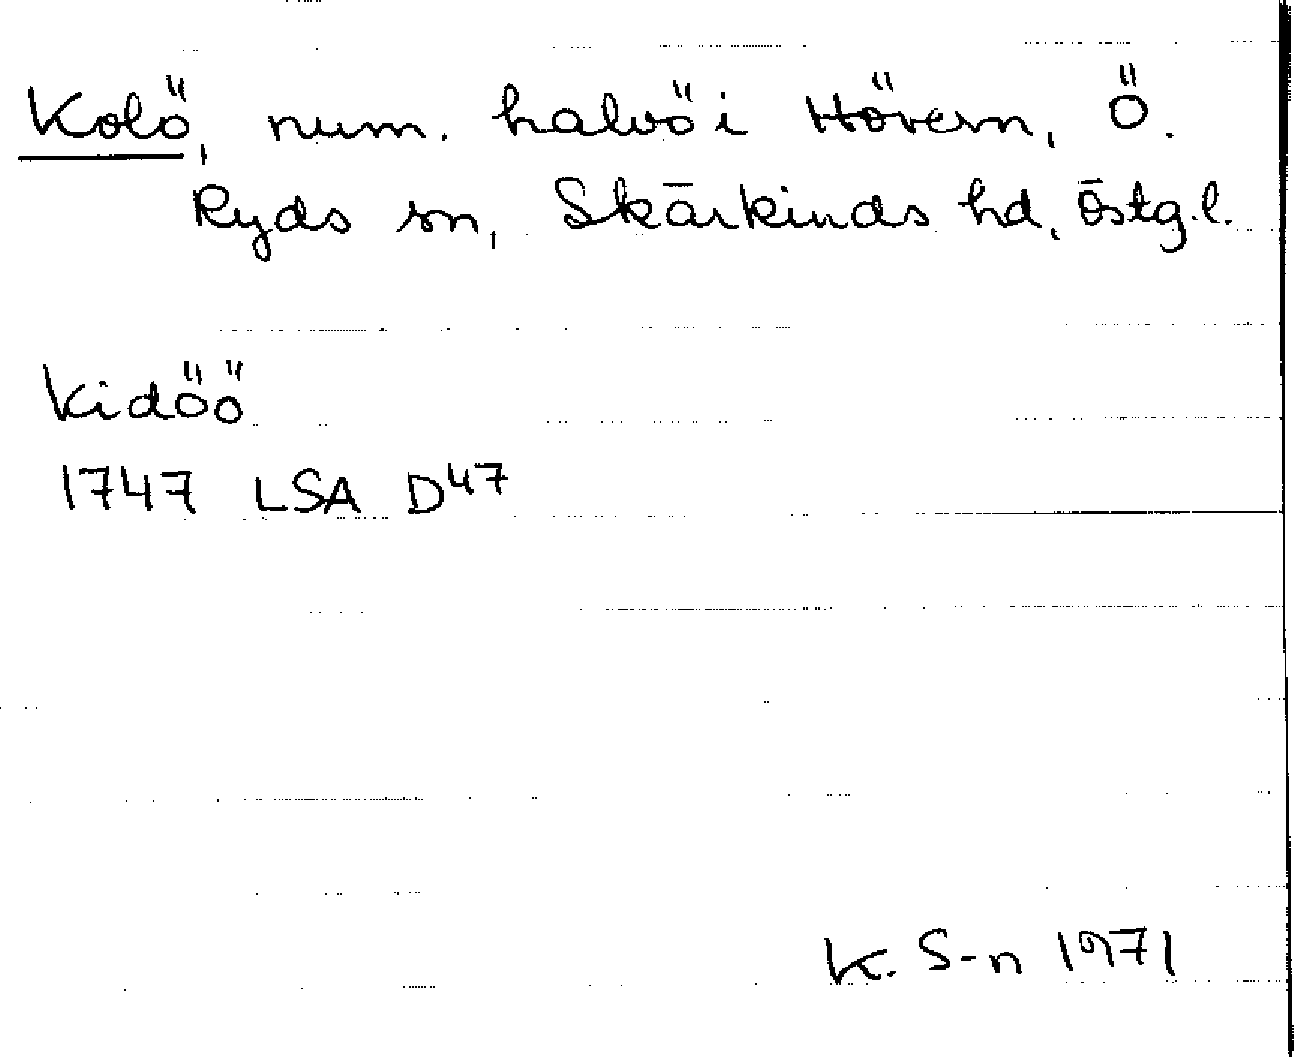 Kolö, num. halvö i Hövern, Ö.
Ryds sn, Skärkinds hd, Östg.l.
Kidöö
1747 LSA D47
K. S-n 1971